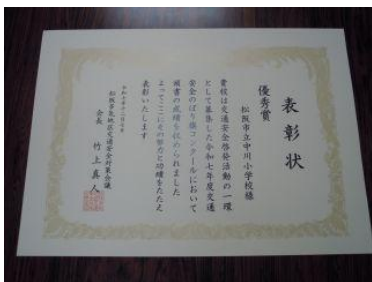 表彰状
優秀賞
松阪市立中川小学校様
貴校は交通安全啓発活動の一環
として募集した令和七年度交通
安全のぼり旗コンクールにおいて
頭書の成績を収められました
よってここにその努力と功績をたたえ
表彰いたします
松阪多気地区交通安全対策会議
会長 竹上真人